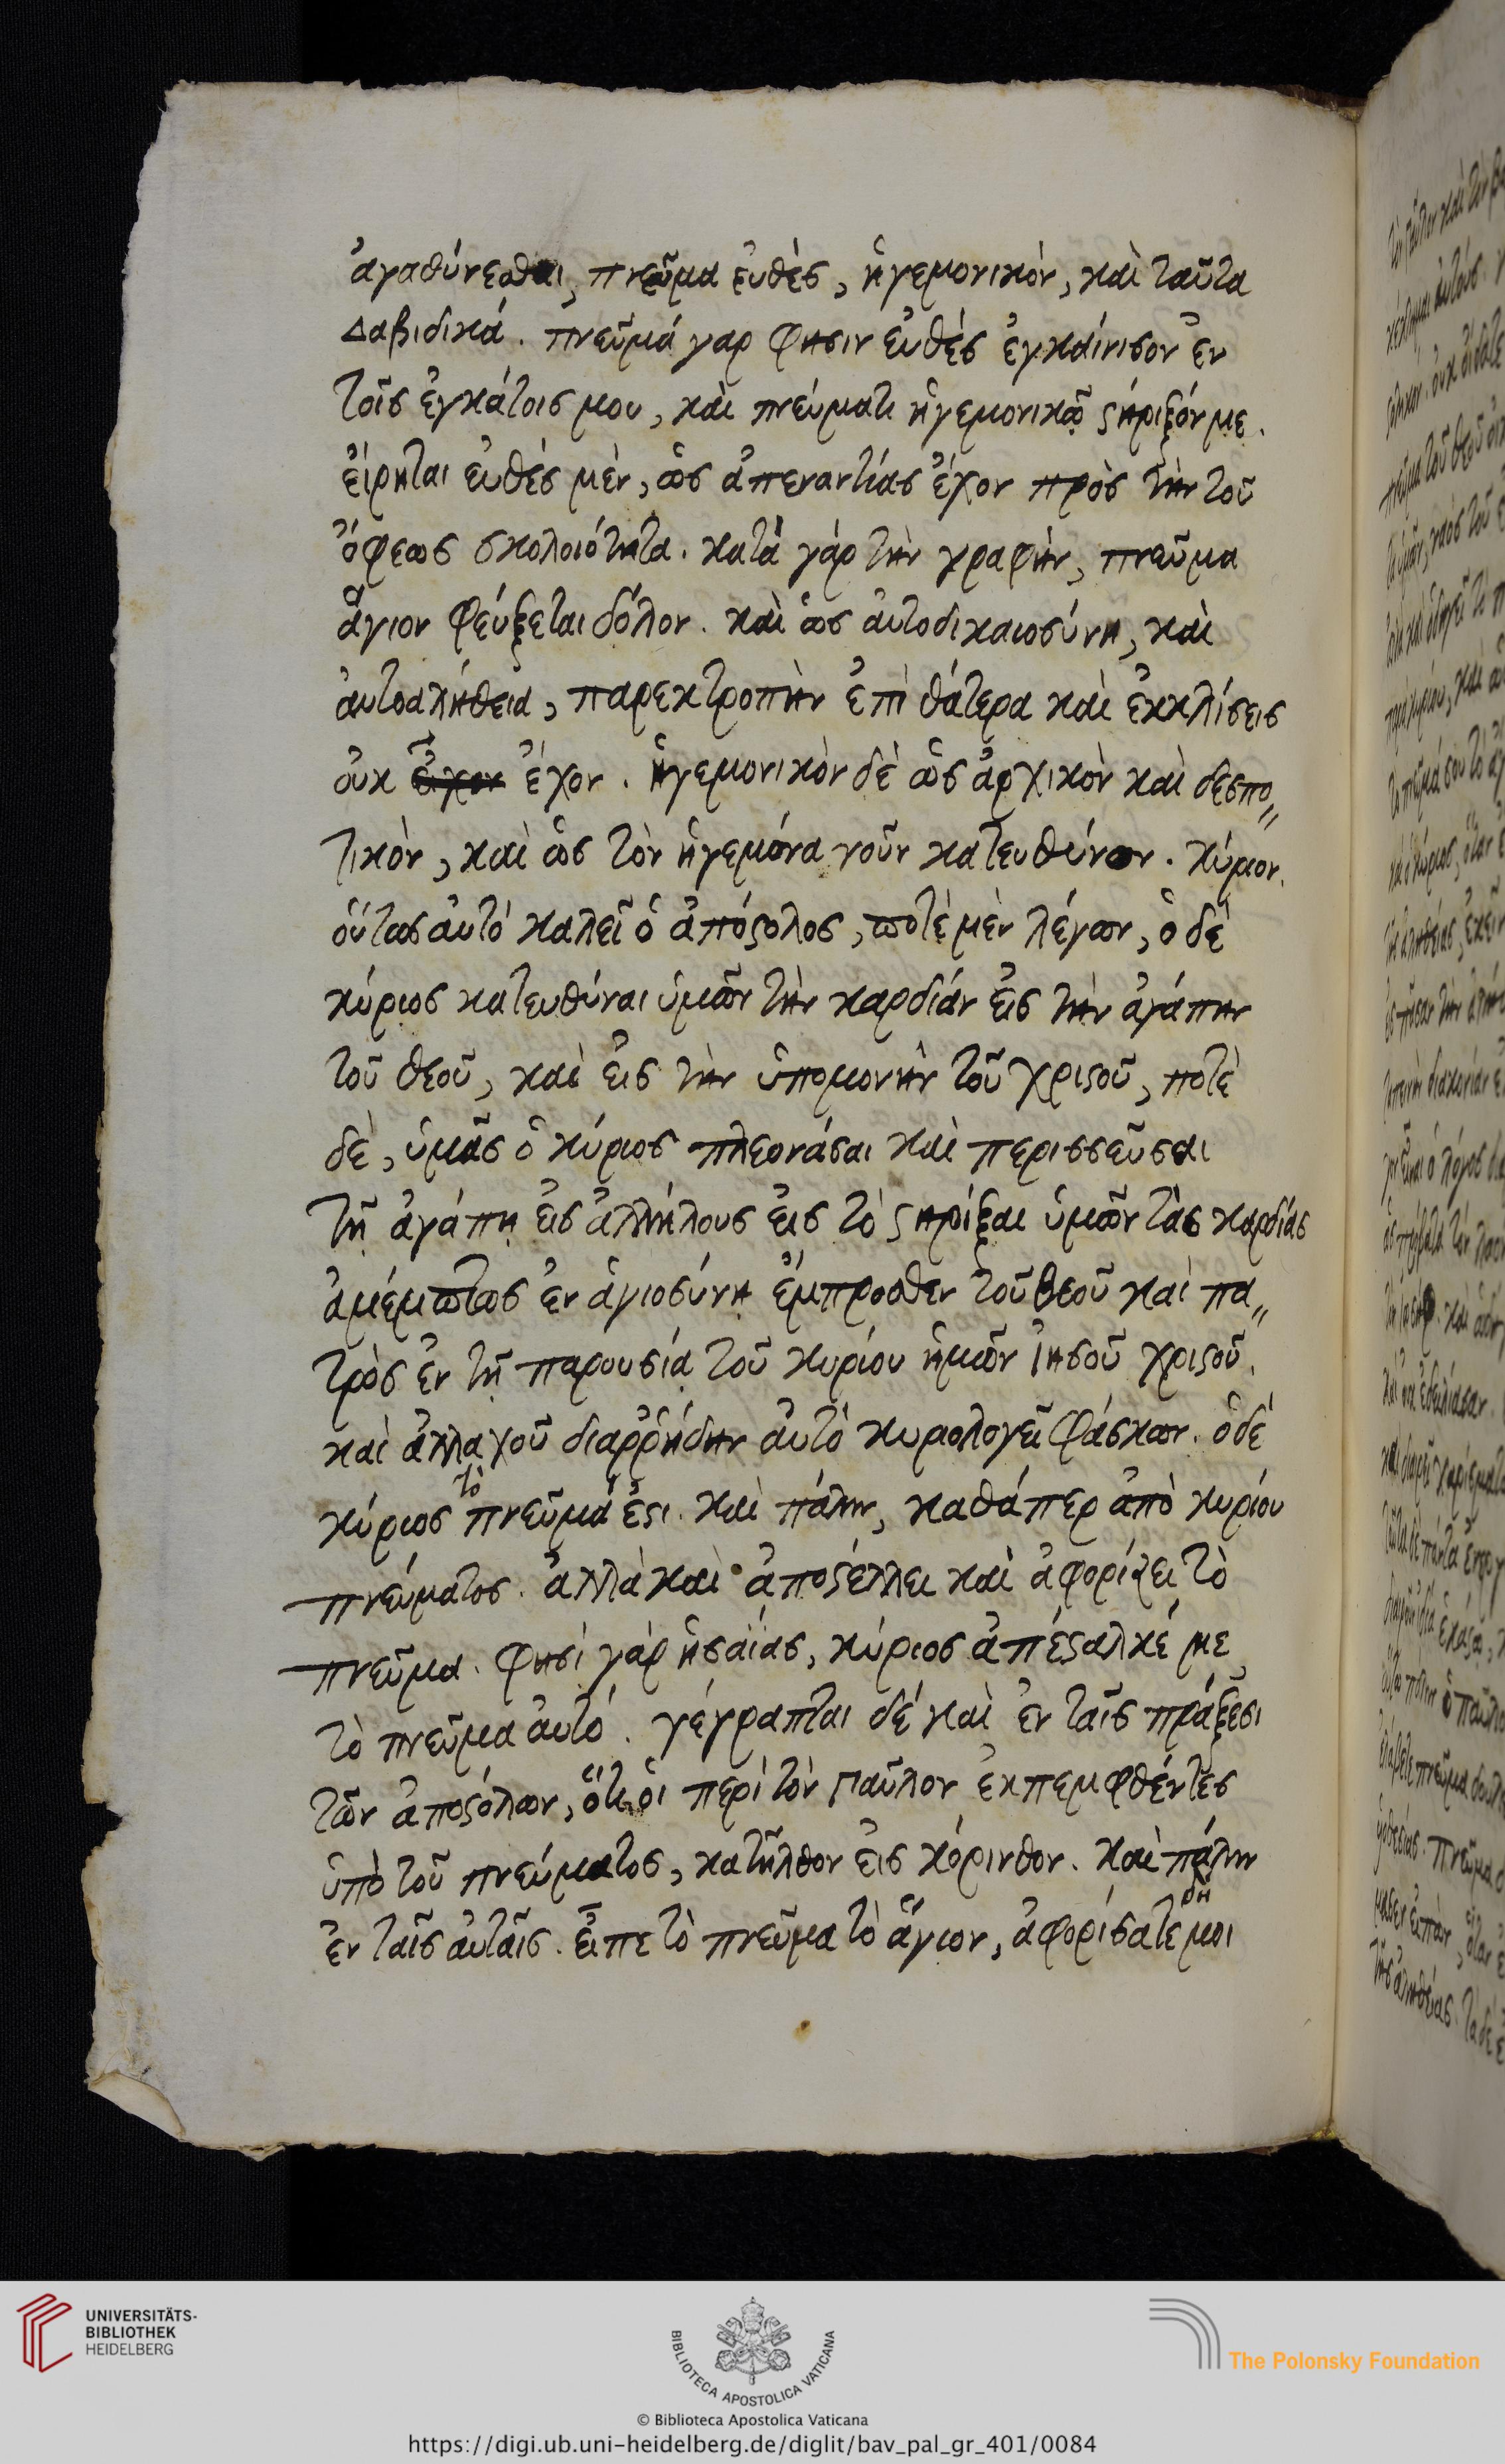 ἀγαθύνεσθαι, πνεῦμα εὐθὲς, ἡγεμονικὸν, καὶ ταῦτα
Δαβιδικά. πνεῦμά γαρ φησιν εὐθὲς ἐγκαίνισον ἐν
τοῖς ἐγκάτοις μου, καὶ πνεύματι ἡγεμονικῷ στήριξόν με.
εἴρηται εὐθὲς μὲν, ὡς ἀπεναντίας ἔχον πρὸς τὴν τοῦ
ὄφεως σκολοιότητα. κατὰ γάρ τὴν γραφὴν, πνεῦμα
ἅγιον φεύξεται δόλον. καὶ ὡς αὐτοδικαιοσύνη, καὶ
αὐτοαλήθεια, παρεκτροπὴν ἐπὶ θάτερα καὶ ἐκκλίσεις
οὐκ εἶχον ἔχον. ἡγεμονικὸν δὲ ὡς ἀρχικὸν καὶ δεσπο"
τικὸν, καὶ ὡς τὸν ἡγεμόνα νοῦν κατευθύνων. κύριον.
οὕτως αὐτὸ καλεῖ ὁ ἀπόστολος, ποτὲ μὲν λέγων, ὁ δὲ
κύριος κατευθύναι ὑμῶν τὴν καρδίαν εἰς τὴν ἀγάπην
τοῦ θεοῦ, καὶ εἰς τὴν ὑπομονὴν τοῦ χριστοῦ, ποτὲ
δὲ, ὑμᾶς ὁ κύριος πλεονάσαι καὶ περισσεῦσαι
τῇ ἀγάπῃ εἰς ἀλλήλους εἰς τὸ στηρίξαι ὑμῶν τὰς καρδίας
ἀμέμπτως ἐν ἁγιοσύνῃ ἔμπροσθεν τοῦ θεοῦ καὶ πα"
τρὸς ἐν τῇ παρουσίᾳ τοῦ κυρίου ἡμῶν ἰησοῦ χριστοῦ.
καὶ ἀλλαχοῦ διαῤῥήδην αὐτὸ κυριολογεῖ φάσκων. ὁ δὲ
κύριος τὸ πνεῦμά ἐστι. καὶ πάλιν, καθάπερ ἀπὸ κυρίου
πνεύματος. ἀλλὰ καὶ ἀποστέλλει καὶ ἀφορίζει τὸ
πνεῦμα. φησὶ γὰρ ἡσαΐας, κύριος ἀπέσταλκέ με
τὸ πνεῦμα αὐτό. γέγραπται δὲ καὶ ἐν ταῖς πράξεσι
τῶν ἀποστόλων, ὅτι οἱ περὶ τὸν Παῦλον ἐκπεμφθέντες
ὑπὸ τοῦ πνεύματος, κατῆλθον εἰς κόρινθον. καὶ πάλιν
ἐν ταῖς αὐταῖς. εἶπε τὸ πνεῦμα τὸ ἅγιον, ἀφορίσατε δή μοι
UNIVERSITÄTS-
BIBLIOTHEK
HEIDELBERG
BIBLIOTECA APOSTOLICA VATICANA
The Polonsky Foundation
© Biblioteca Apostolica Vaticana
https://digi.ub.uni-heidelberg.de/diglit/bav_pal_gr_401/0084